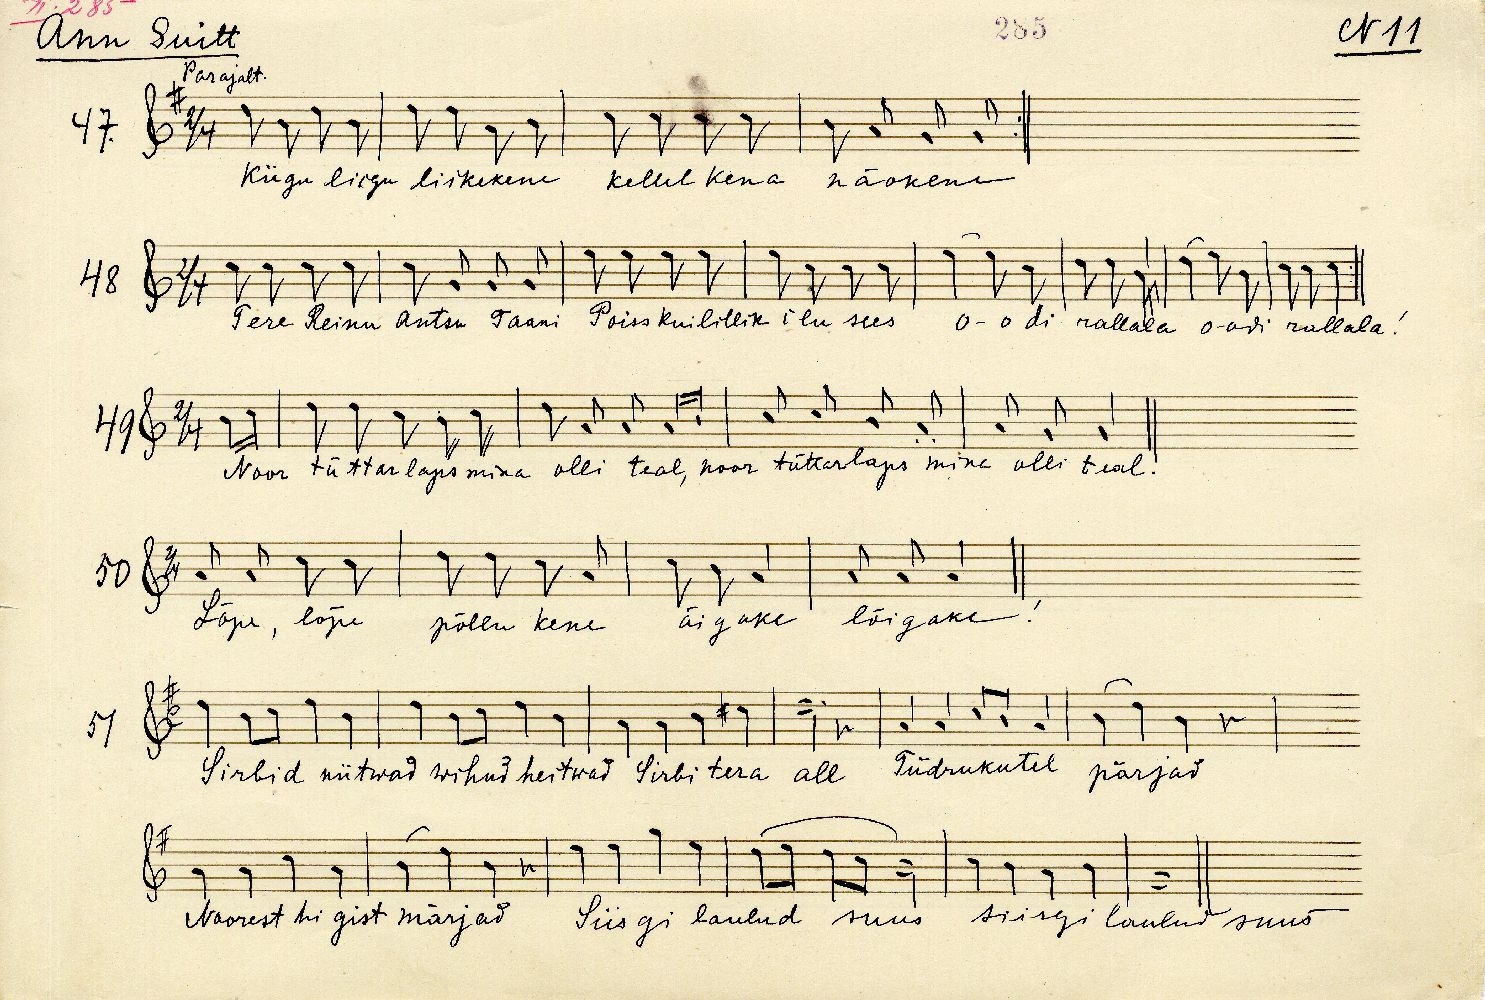 II: 285
Ann Suitt
285
N 11
Parajalt.
47.
2/4
Kiigu liigu liikekene kellel kena näokene
48
2/4
Tere Reinu Antsu Taani Poiss kui lillik ilu sees o-o di rallala o-odi rallala!
49
2/4
Noor tüttarlaps mina olli teal, noor tüttarlaps mina olli teal.
50
2/4
Lõpe, lõpe põllu kene äigake lõigake!
51
Sirbid niitwad wihud heitwad Sirbi tera all Tüdrukutel pärjad
Noorest hi gist märjad Siisgi laulud suus siisgi laulud suus